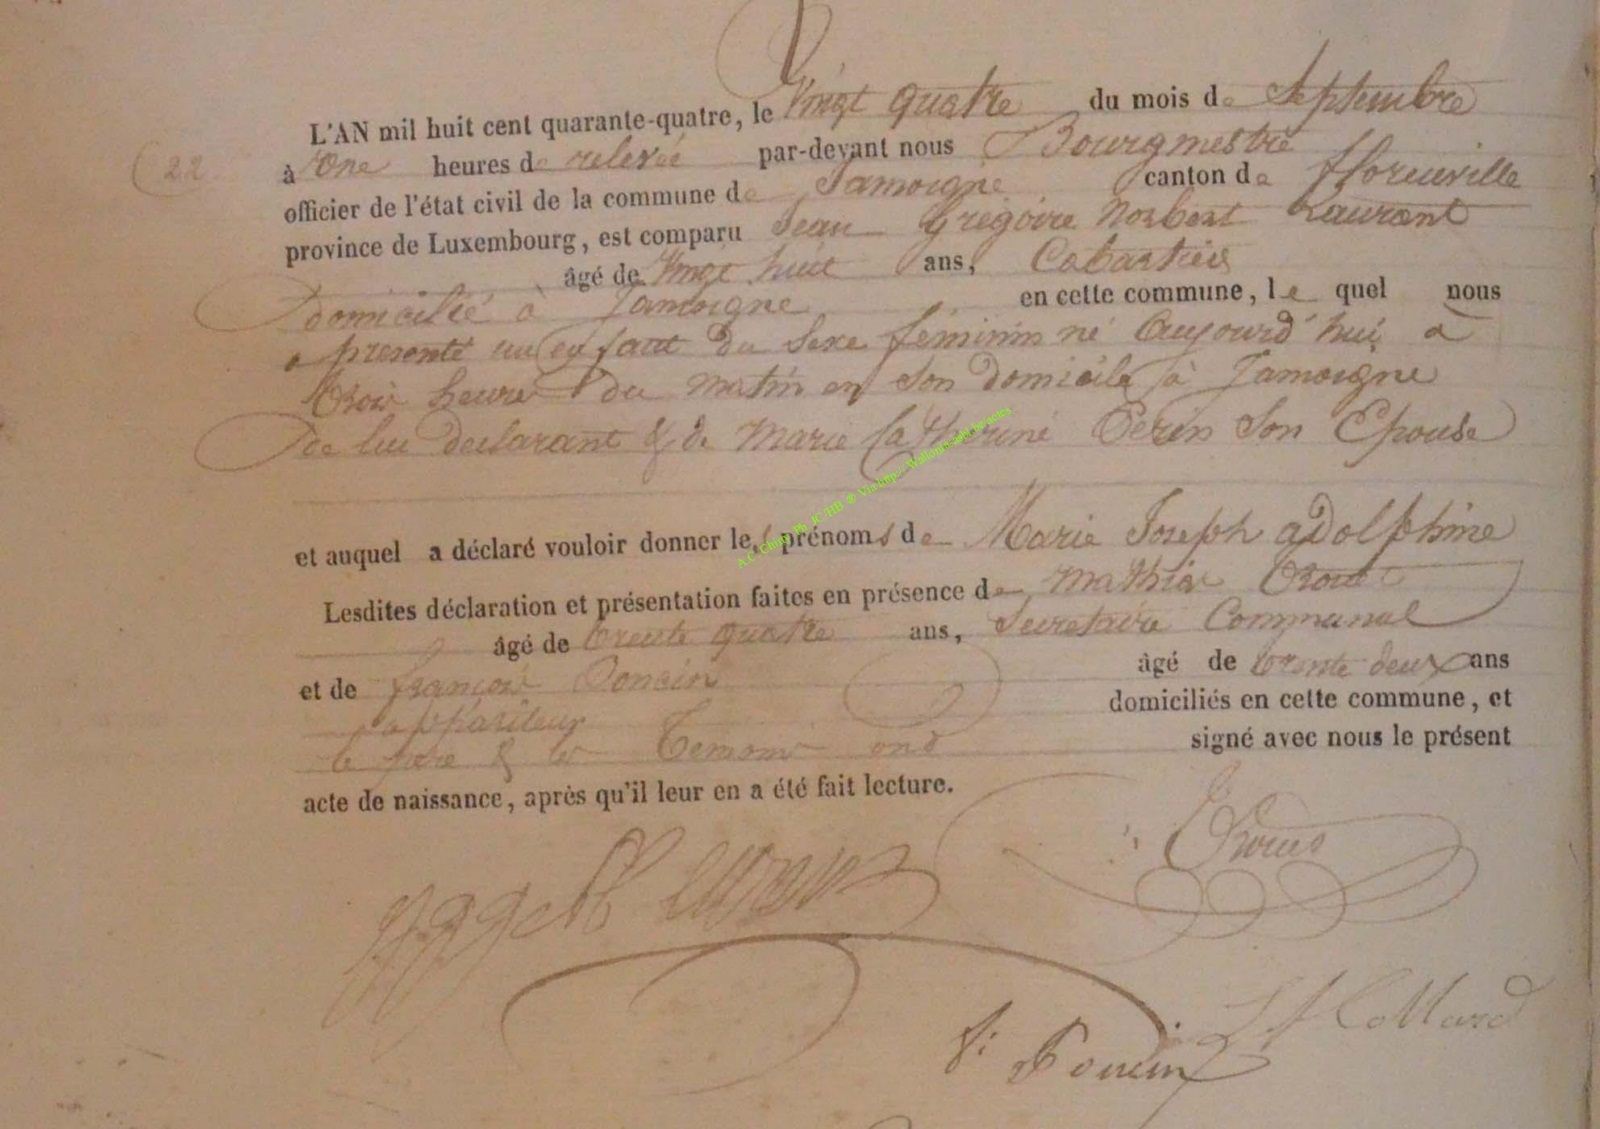 L'AN mil huit cent quarante-quatre, le Vingt quatre du mois de Septembre
22 à une heures de relevée par-devant nous Bourgmestre
officier de l'état civil de la commune de Jamoigne canton de fflorenville
province de Luxembourg, est comparu Jean Grégoire Norbert Laurent
âgé de Vingt huit ans, Cabartier
domicilié à Jamoigne en cette commune, le quel nous
a presenté un enfant du Sexe féminin né Aujourd'hui à
trois heures du matin en son domicile à Jamoigne
de lui declarant & de Marie Catherine Perin Son Epouse
et auquel a déclaré vouloir donner les prénoms de Marie Joseph adolphine
Lesdites déclaration et présentation faites en présence de Mathias
âgé de trente quatre ans, Secretaire Communal
et de françois Poncin âgé de trente deux ans
appariteur domiciliés en cette commune, et
le père & les Temoins ond signé avec nous le présent
acte de naissance, après qu'il leur en a été fait lecture.
f: Poncin Collard